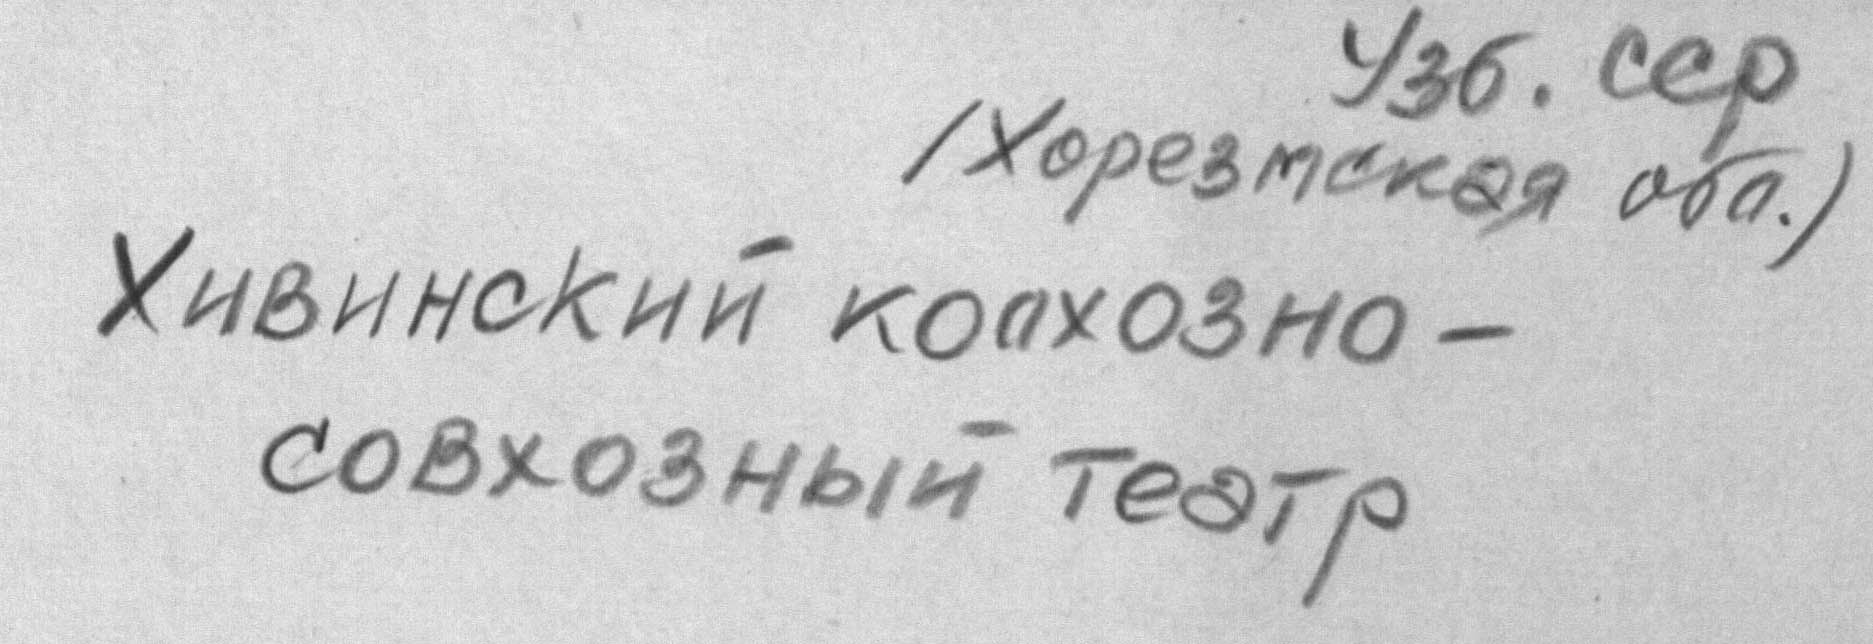 Узб. ССР
/Хорезмская обл.)
Хивинский колхозно-
совхозный театр